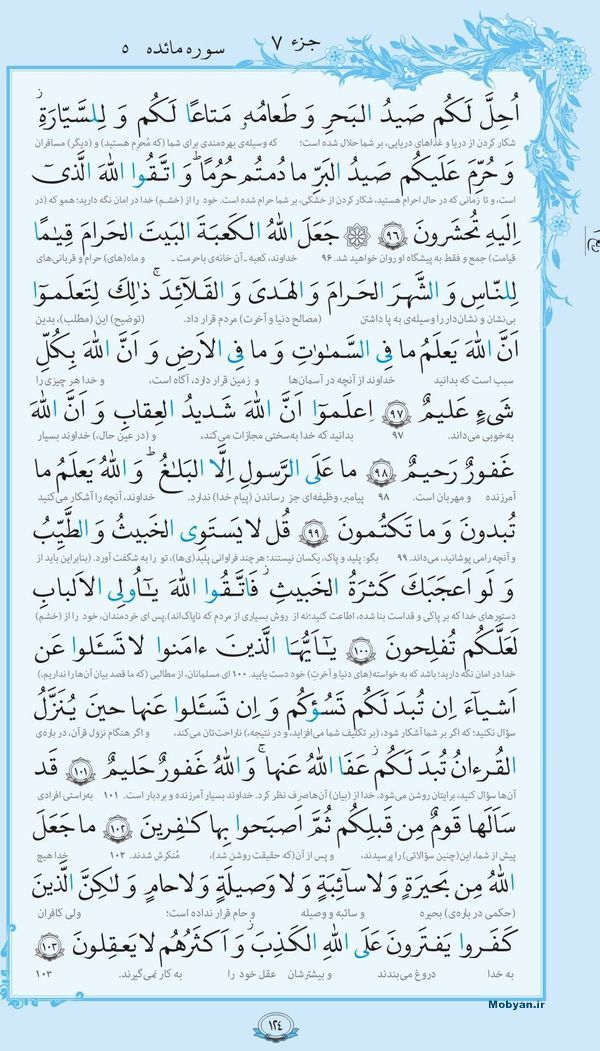 جزء ۷
سوره مائده ۵
اُحِلَّ لَكُم صَيدُ البَحرِ وَ طَعامُهُ مَتاعًا لَكُم وَ لِلسَّيّارَةِ
شکار کردن از دریا و غذاهای دریایی، بر شما حلال شده است؛ که وسیله‌ی بهره‌مندی برای شما (که مُحرِم هستید) و (دیگر) مسافران
وَ حُرِّمَ عَلَيكُم صَيدُ البَرِّ ما دُمتُم حُرُمًا ۗ وَ اتَّقُوا اللّٰهَ الَّذىٓ
است، و تا زمانی که در حال احرام هستید، شکار کردن از خشکی، بر شما حرام شده است. خود را از (خشم) خدا در امان نگه دارید؛ همو که (در
اِلَيهِ تُحشَرونَ ﴿۹۶﴾ جَعَلَ اللّٰهُ الكَعبَةَ البَيتَ الحَرامَ قِيٰمًا
قیامت) جمع و فقط به پیشگاه او روان خواهید شد. ۹۶ خداوند، کعبه ـ آن خانه‌ی باحرمت ـ و ماه(های) حرام و قربانی‌های
لِلنّاسِ وَ الشَّهرَ الحَرامَ وَ الهَدىَ وَ القَلٰٓائِدَ ۚ ذٰلِكَ لِتَعلَموٓا
بی‌نشان و نشان‌دار را وسیله‌ی به پا داشتن (مصالح دنیا و آخرت) مردم قرار داد. (توضیح) این (مطلب)، بدین
اَنَّ اللّٰهَ يَعلَمُ ما فِى السَّمٰوٰتِ وَ ما فِى الاَرضِ وَ اَنَّ اللّٰهَ بِكُلِّ
سبب است که بدانید خداوند از آنچه در آسمان‌ها و زمین قرار دارد، آگاه است، و خدا هر چیزی را
شَىءٍ عَليمٌ ﴿۹۷﴾ اِعلَموٓا اَنَّ اللّٰهَ شَديدُ العِقابِ وَ اَنَّ اللّٰهَ
به‌خوبی می‌داند. ۹۷ بدانید که خدا به‌سختی مجازات می‌کند، و (در عین حال،) خداوند بسیار
غَفورٌ رَحيمٌ ﴿۹۸﴾ ما عَلَى الرَّسولِ اِلَّا البَلٰغُ ۗ وَ اللّٰهُ يَعلَمُ ما
آمرزنده و مهربان است. ۹۸ پیامبر، وظیفه‌ای جز رساندن (پیام خدا) ندارد. خداوند، آنچه را آشکار می‌کنید
تُبدونَ وَ ما تَكتُمونَ ﴿۹۹﴾ قُل لا يَستَوِى الخَبيثُ وَ الطَّيِّبُ
و آنچه را می پوشانید، می‌داند. ۹۹ بگو: پلید و پاک، یکسان نیستند؛ هرچند فراوانی پلید(ی‌ها)، تو را به شگفت آورد. (بنابراین باید از
وَ لَو اَعجَبَكَ كَثرَةُ الخَبيثِ ۚ فَاتَّقُوا اللّٰهَ يٰٓاُولِى الاَلبابِ
دستورهای خدا که بر پاکی و قداست بنا شده، اطاعت کنید؛ نه از روش بسیاری از مردم که ناپاک‌اند). پس ای خردمندان، خود را از (خشم)
لَعَلَّكُم تُفلِحونَ ﴿۱۰۰﴾ يٰٓاَيُّهَا الَّذينَ ءامَنوا لا تَسـَٔلوا عَن
خدا در امان نگه دارید؛ باشد که به خواسته(های دنیا و آخرتِ) خود دست یابید. ۱۰۰ ای مسلمانان، از مطالبی (که ما قصد بیان آن‌ها را نداریم،)
اَشيآءَ اِن تُبدَ لَكُم تَسُؤكُم وَ اِن تَسـَٔلوا عَنها حينَ يُنَزَّلُ
سؤال نکنید؛ که اگر بر شما آشکار شود، (بر تکلیف شما می‌افزاید، و در نتیجه،) ناراحت‌تان می‌کند، و اگر هنگام نزول قرآن، درباره‌ی
القُرءانُ تُبدَ لَكُم عَفَا اللّٰهُ عَنها ۚ وَ اللّٰهُ غَفورٌ حَليمٌ ﴿۱۰۱﴾ قَد
آن‌ها سؤال کنید، برایتان روشن می‌شود. خدا از (بیان) آن‌ها صرف نظر کرد. خداوند بسیار آمرزنده و بردبار است. ۱۰۱ به‌راستی افرادی
سَاَلَها قَومٌ مِن قَبلِكُم ثُمَّ اَصبَحوا بِها كٰفِرينَ ﴿۱۰۲﴾ ما جَعَلَ
پیش از شما، این(چنین سؤالاتی) را پرسیدند، و پس از آن (که حقیقت روشن شد)، مُنکرش شدند. ۱۰۲ خدا هیچ
اللّٰهُ مِن بَحيرَةٍ وَ لا سآئِبَةٍ وَ لا وَصيلَةٍ وَ لا حامٍ وَ لٰكِنَّ الَّذينَ
(حکمی در باره‌ی) بحیره و سائبه و وصیله و حام قرار نداده است؛ ولی کافران
كَفَروا يَفتَرونَ عَلَى اللّٰهِ الكَذِبَ ۖ وَ اَكثَرُهُم لا يَعقِلونَ ﴿۱۰۳﴾
به خدا دروغ می‌بندند و بیشترشان عقل خود را به کار نمی‌گیرند. ۱۰۳
Mobyan.ir
۱۲۴